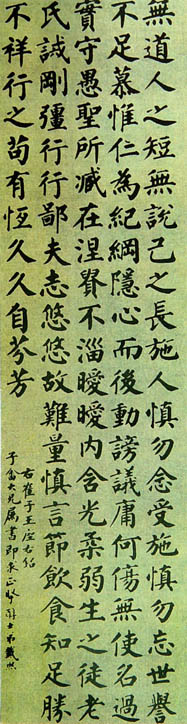 無道人之短無說己之長施人慎勿念受施慎勿忘世譽
不足慕惟仁為紀綱隱心而後動謗議庸何傷無使名過
實守愚聖所臧在涅貴不淄曖曖內含光柔弱生之徒老
氏誡剛彊行行鄙夫志悠悠故難量慎言節飲食知足勝
不祥行之苟有恆久久自芬芳
右崔子玉座右銘
大兄屬書即求正 弟戴熙